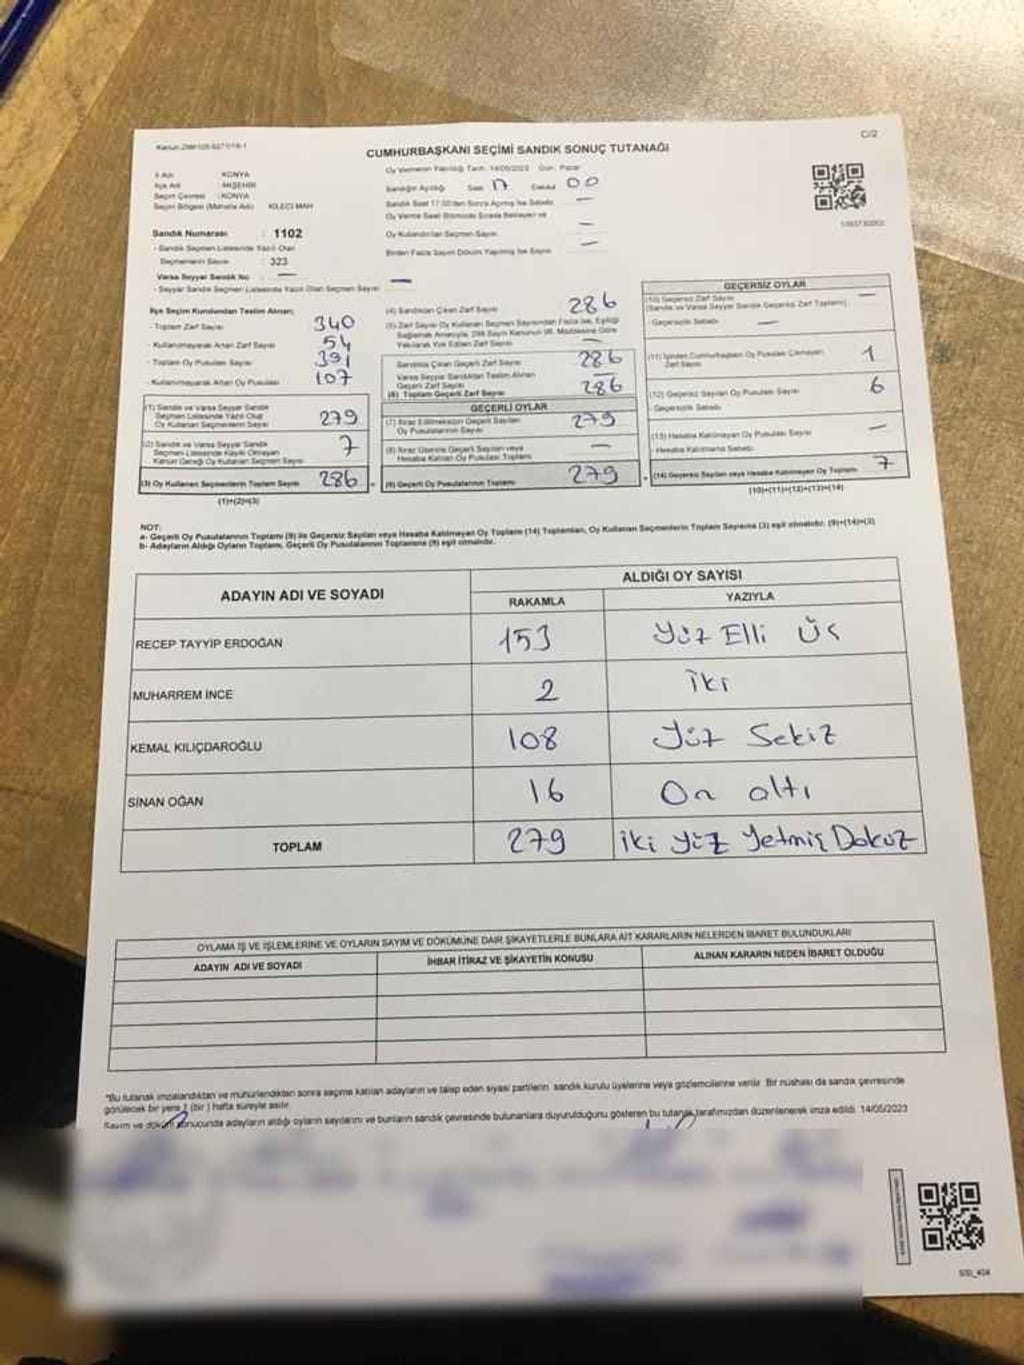 C/2
CUMHURBAŞKANI SEÇİMİ SANDIK SONUÇ TUTANAĞI
İl Adı : KONYA
İlçe Adı : AKŞEHİR
Seçim Çevresi : KONYA
Seçim Bölgesi (Mahalle Adı) KİLECİ MAH
Sandık Numarası : 1102
- Sandık Seçmen Listesinde Yazılı Olan
Seçmenlerin Sayısı : 323
Varsa Seyyar Sandık No : —
- Seyyar Sandık Seçmen Listesinde Yazılı Olan Seçmen Sayısı —
Oy Vermenin Yapıldığı Tarih: 14/05/2023 Gün: Pazar
Sandığın Açıldığı Saat 17 Dakika 00
Sandık Saat 17:00'den Sonra Açılmış İse Sebebi —
Oy Verme Saati Bitiminde Sırada Bekleyen ve
Oy Kullandırılan Seçmen Sayısı —
Birden Fazla Sayım Döküm Yapılmış İse Sayısı —
İlçe Seçim Kurulundan Teslim Alınan;
- Toplam Zarf Sayısı 340
- Kullanılmayarak Artan Zarf Sayısı 54
- Toplam Oy Pusulası Sayısı 391
- Kullanılmayarak Artan Oy Pusulası 107
(1) Sandık ve Varsa Seyyar Sandık
Seçmen Listesinde Yazılı Olup
Oy Kullanan Seçmenlerin Sayısı 279
(2) Sandık ve Varsa Seyyar Sandık
Seçmen Listesinde Kayıtlı Olmayan
Kanun Gereği Oy Kullanan Seçmen Sayısı 7
(3) Oy Kullanan Seçmenlerin Toplam Sayısı 286
(1)+(2)=(3)
(4) Sandıktan Çıkan Zarf Sayısı 286
(5) Zarf Sayısı Oy Kullanan Seçmen Sayısından Fazla ise, Eşitliği
Sağlamak Amacıyla, 298 Sayılı Kanunun 98. Maddesine Göre
Yakılarak Yok Edilen Zarf Sayısı —
Sandıkta Çıkan Geçerli Zarf Sayısı 286
Varsa Seyyar Sandıktan Teslim Alınan
Geçerli Zarf Sayısı —
(6) Toplam Geçerli Zarf Sayısı 286
GEÇERLİ OYLAR
(7) İtiraz Edilmeksizin Geçerli Sayılan
Oy Pusulalarının Sayısı 279
(8) İtiraz Üzerine Geçerli Sayılan veya
Hesaba Katılan Oy Pusulası Toplamı —
(9) Geçerli Oy Pusulalarının Toplamı 279
GEÇERSİZ OYLAR
(10) Geçersiz Zarf Sayısı —
(Sandık ve Varsa Seyyar Sandık Geçersiz Zarf Toplamı)
- Geçersizlik Sebebi —
(11) İçinden Cumhurbaşkanı Oy Pusulası Çıkmayan
Zarf Sayısı 1
(12) Geçersiz Sayılan Oy Pusulası Sayısı 6
- Geçersizlik Sebebi
(13) Hesaba Katılmayan Oy Pusulası Sayısı —
- Hesaba Katılmama Sebebi
(14) Geçersiz Sayılan veya Hesaba Katılmayan Oy Toplamı 7
(10)+(11)+(12)+(13)=(14)
NOT:
a- Geçerli Oy Pusulalarının Toplamı (9) ile Geçersiz Sayılan veya Hesaba Katılmayan Oy Toplamı (14) Toplamları, Oy Kullanan Seçmenlerin Toplam Sayısına (3) eşit olmalıdır. (9)+(14)=(3)
b- Adayların Aldığı Oyların Toplamı, Geçerli Oy Pusulalarının Toplamına (9) eşit olmalıdır.
ADAYIN ADI VE SOYADI
ALDIĞI OY SAYISI
RAKAMLA YAZIYLA
RECEP TAYYİP ERDOĞAN 153 Yüz Elli Üç
MUHARREM İNCE 2 İki
KEMAL KILIÇDAROĞLU 108 Yüz Sekiz
SİNAN OĞAN 16 On altı
TOPLAM 279 iki yüz Yetmiş Dokuz
OYLAMA İŞ VE İŞLEMLERİNE VE OYLARIN SAYIM VE DÖKÜMÜNE DAİR ŞİKAYETLERLE BUNLARA AİT KARARLARIN NELERDEN İBARET BULUNDUKLARI
ADAYIN ADI VE SOYADI İHBAR İTİRAZ VE ŞİKAYETİN KONUSU ALINAN KARARIN NEDEN İBARET OLDUĞU
*Bu tutanak imzalandıktan ve mühürlendikten sonra seçime katılan adayların ve talep eden siyasi partilerin sandık kurulu üyelerine veya gözlemcilerine verilir. Bir nüshası da sandık çevresinde
görülecek bir yere 1 (bir ) hafta süreyle asılır.
Sayım ve döküm sonucunda adayların aldığı oyların sayılarını ve bunların sandık çevresinde bulunanlara duyurulduğunu gösteren bu tutanak tarafımızdan düzenlenerek imza edildi. 14/05/2023